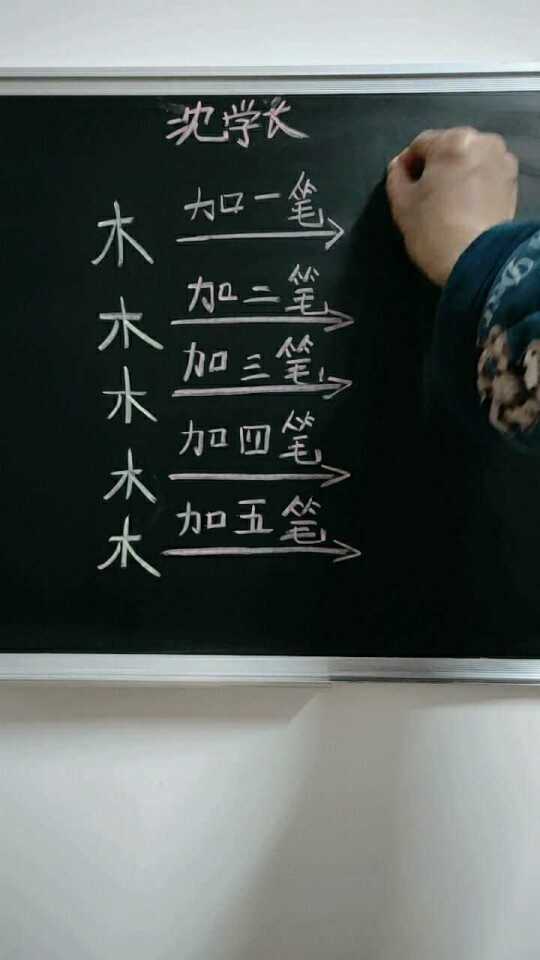 沈学长
木 加一笔
木 加二笔
木 加三笔
木 加四笔
木 加五笔